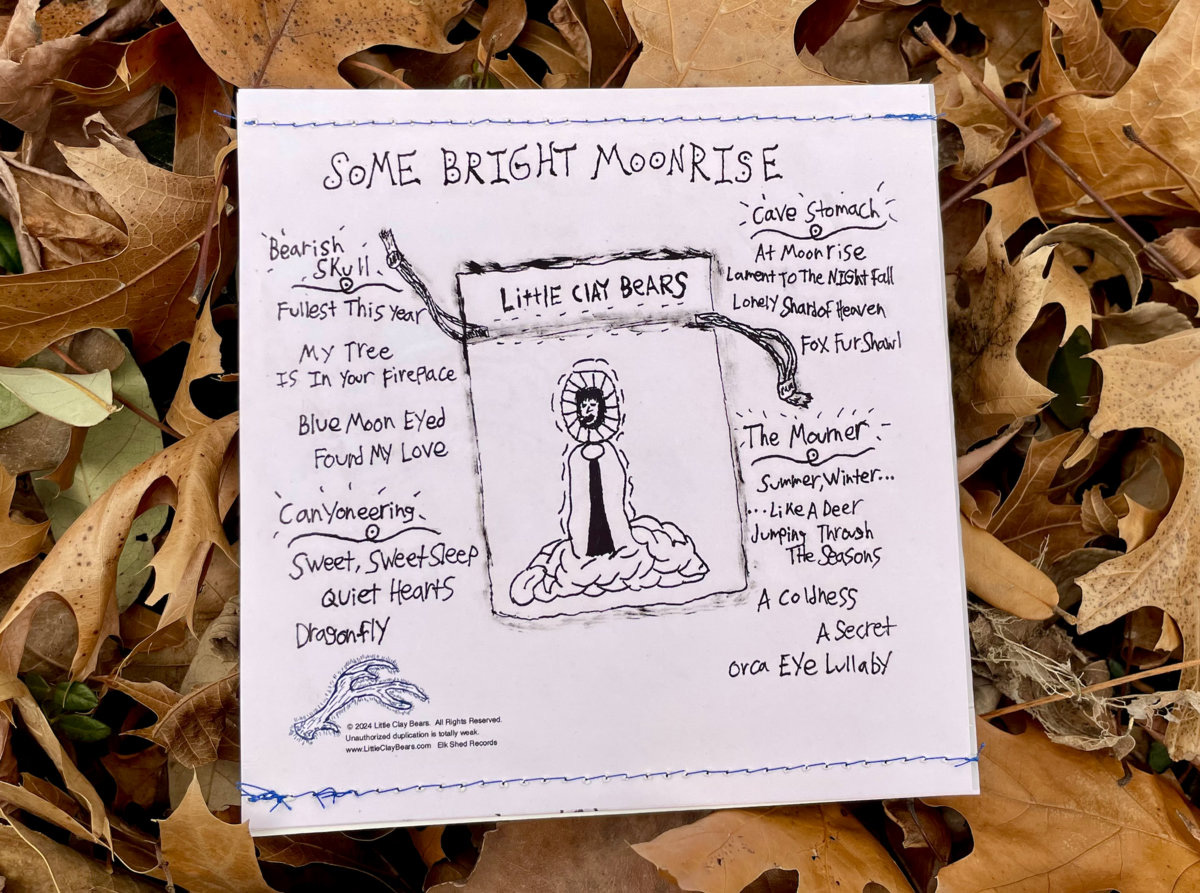 SOME BRIGHT MOONRISE
Bearish
Skull
Fullest This Year
My Tree
Is In Your Firepace
Blue Moon Eyed
Found My Love
Canyoneering
Sweet, Sweet Sleep
Quiet Hearts
Dragonfly
LittlE ClAY BeARS
Cave Stomach
At Moonrise
Lament To The NIGHT Fall
Lonely Shard of Heaven
Fox Fur Shawl
The Mourner
Summer, Winter...
...Like A Deer
Jumping Through
The Seasons
A Coldness
A Secret
Orca EYe Lullaby
© 2024 Little Clay Bears. All Rights Reserved.
Unauthorized duplication is totally weak.
www.LittleClayBears.com Elk Shed Records